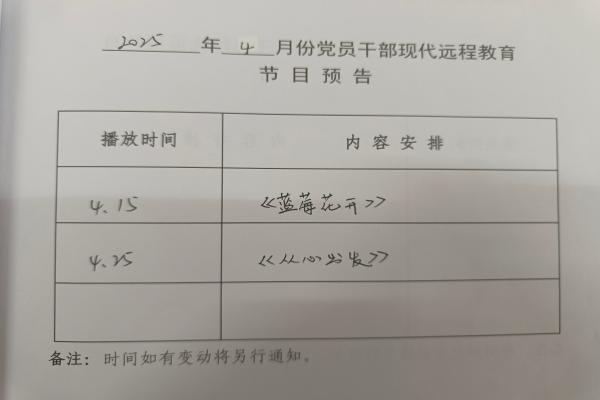 2025 年 4 月份党员干部现代远程教育
节目预告
播放时间 内容安排
4.15 《蓝莓花开》
4.25 《从心出发》
备注：时间如有变动将另行通知。